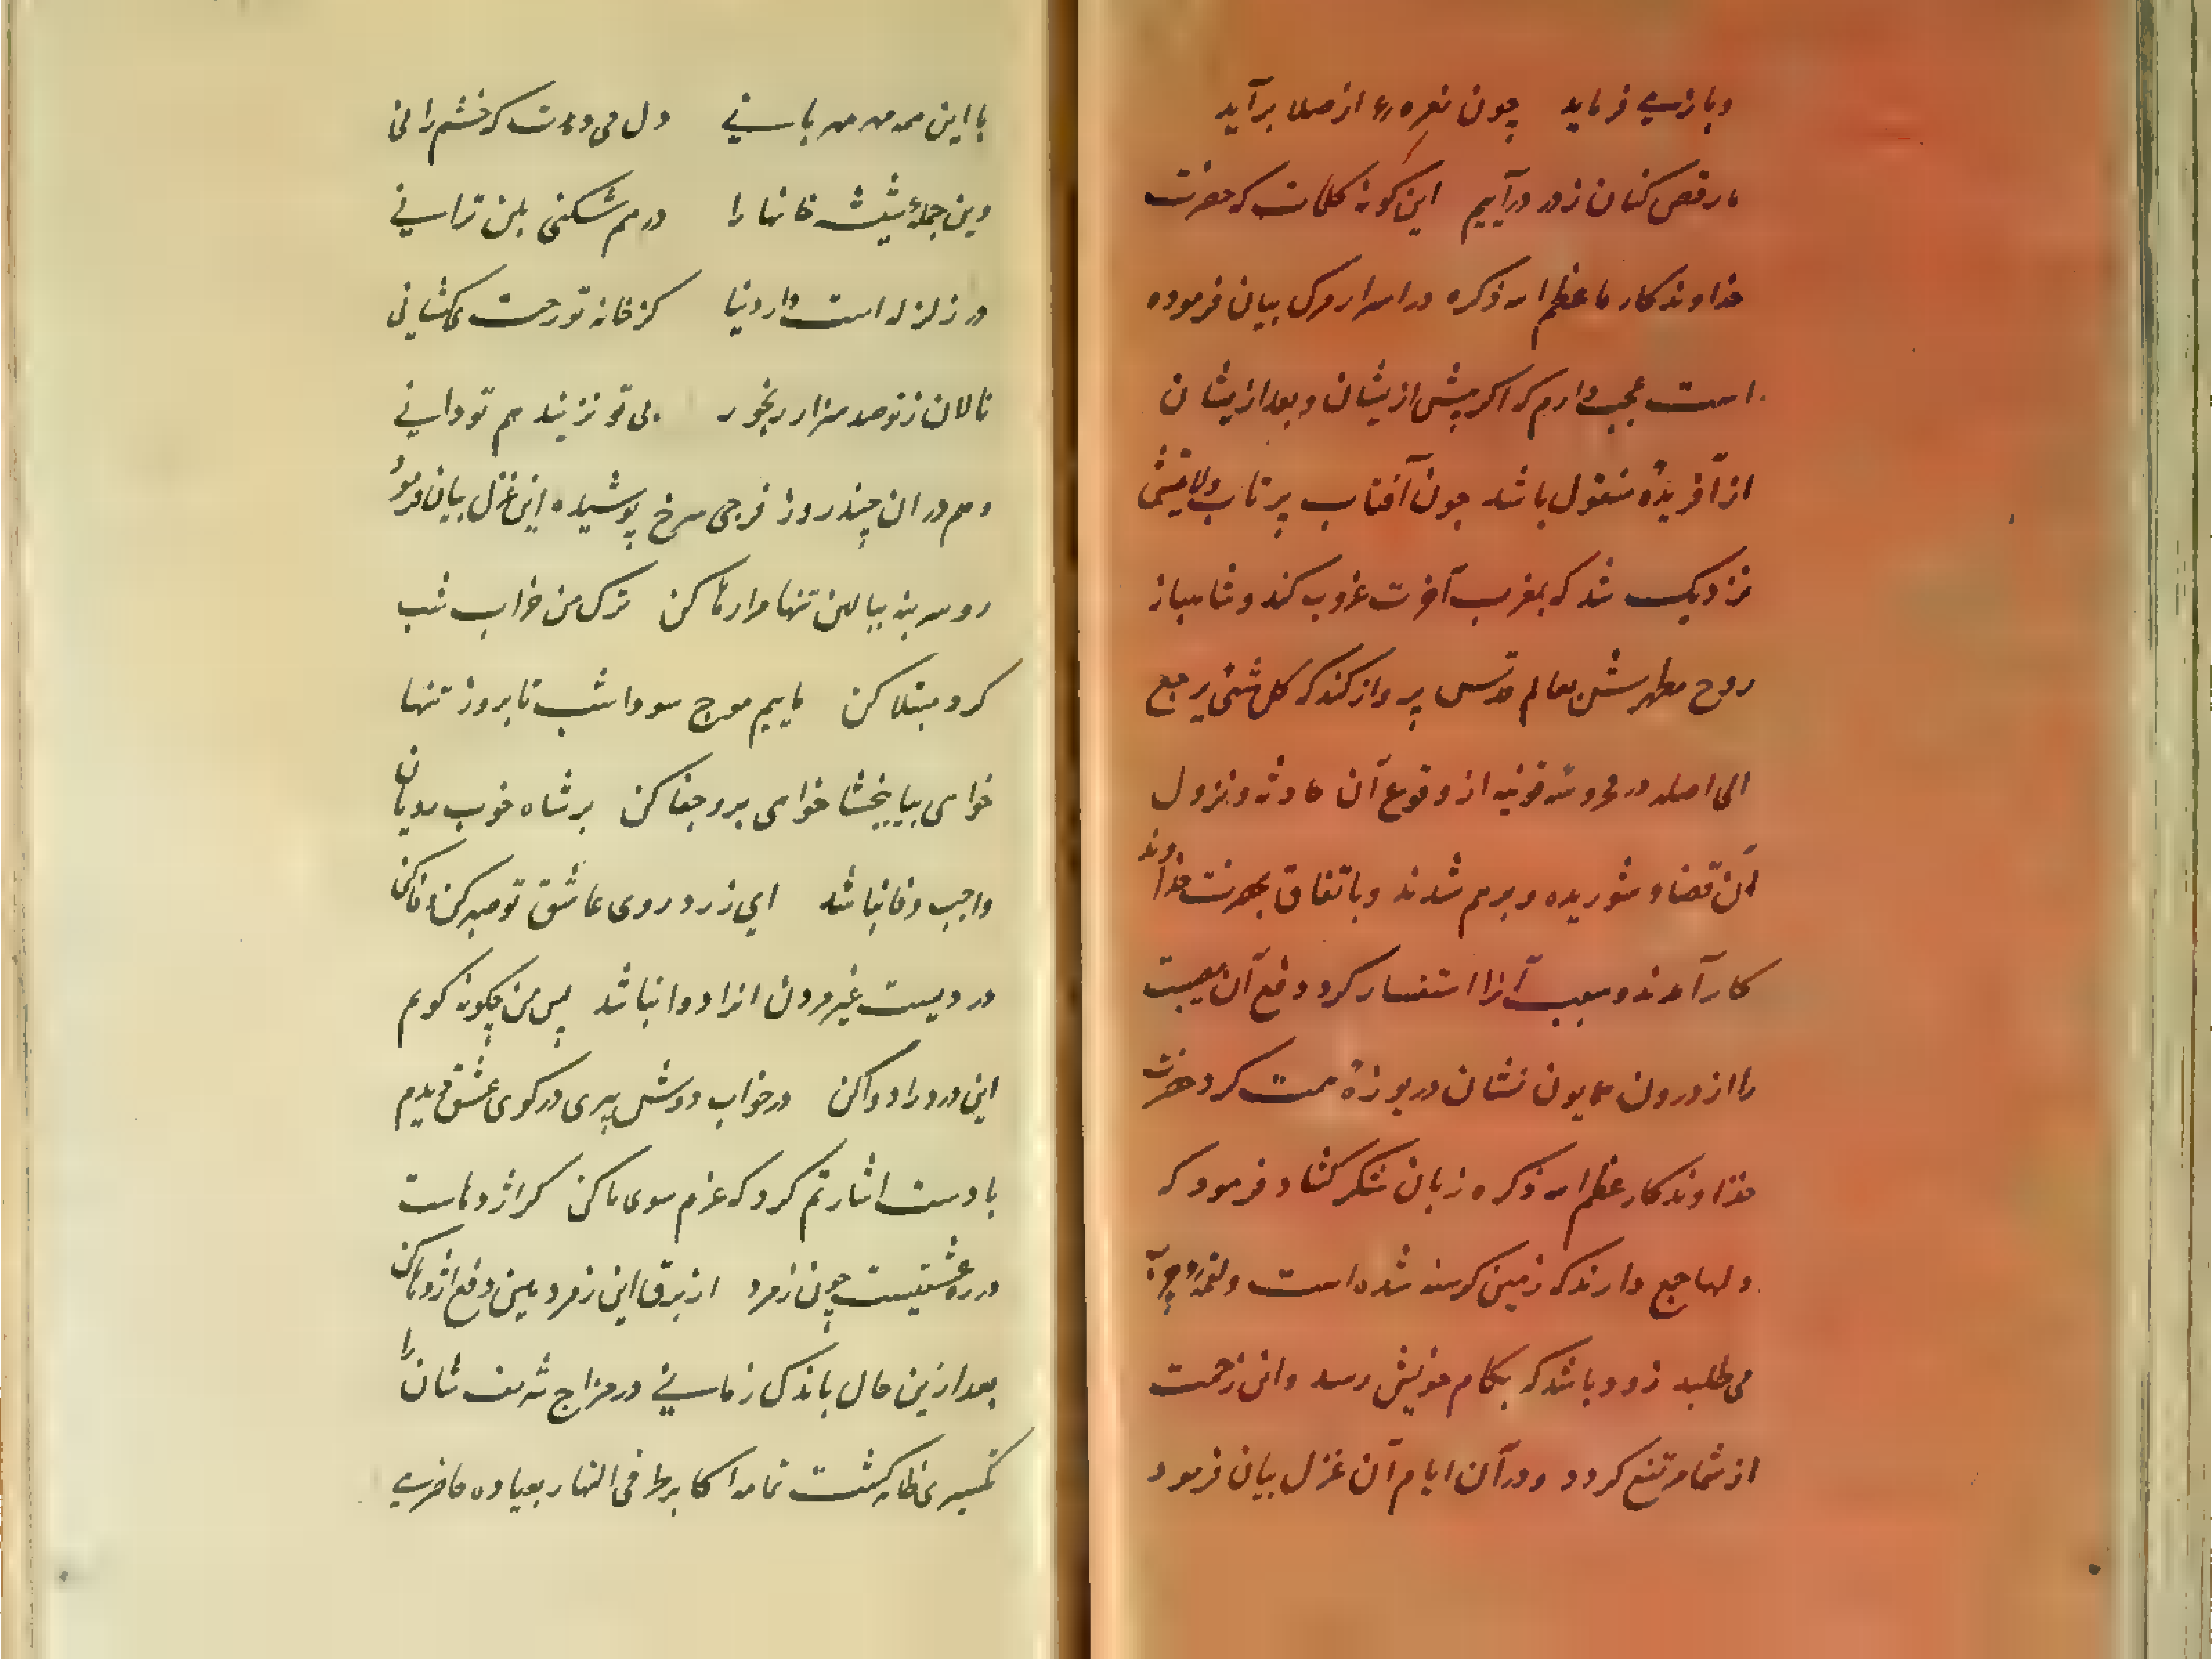 و بازی فرماید چون نعرهٔ از صلا برآید
ما رقص کنان ز در درآییم این گونه کلمات که حضرت
خداوندکار ما عظم الله ذکره در اسرار مرک بیان فرموده
است عجب دارم که اکر پیش ازیشان و بعد ازیشان
از آفریدهٔ منقول باشد چون آفتاب پرتاب ولایتش
نزدیک شد که بمغرب آخرت غروب کند و شاهباز
روح مطهرش بعالم قدس پرواز کند که کل شئ یرجع
الی اصله در محروسه قونیه از وقوع آن حادثه و نزول
آن قضا و شوریده و برهم شدند و باتفاق بحضرت خداوند
کار آمدند و سبب آنرا استفسار کرد دفع آن مصیبت
را از درون همایون نشان دریوزهٔ همت کرد حضرت
خداوندکار عظم الله ذکره زبان شکر کشاد فرمود که
دلها جمع دارند که زمین کرسنه شده است و لقمهٔ چرب
می طلبد زود باشد که بکام خویش رسد و این زحمت
از شما مرتفع کردد و در آن ایام آن غزل بیان فرمود
با این همه مهر و مهربانی دل می دهدت که خشم رانی
وین جملهٔ شیشه خانها را درهم شکنی بلن ترانی
در زلزله است دار دنیا کز خانه تو رخت می کشانی
نالان ز تو صد هزار رنجور بی تو نزیند هم تو دانی
و هم در ان چند روز فرجی سرخ پوشیده این غزل بیان فرمود
رو سر بنه ببالین تنها مرا رها کن ترک من خراب شب
کرد مبتلا کن ماییم موج سودا شب تا بروز تنها
خواهی بیا ببخشا خواهی برو جفا کن بر شاه خوب رویان
واجب وفا نباشد ای زرد روی عاشق تو صبر کن وفا کن
دردیست غیر مردن انرا دوا نباشد پس من چکونه کویم
این درد را دوا کن در خواب دوش پیری در کوی عشق دیدم
با دست اشارتم کرد که عزم سوی ما کن کر اژدهاست
در ره عشقیست چون زمرد از برق این زمرد هین دفع اژدها کن
بعد ازین حال باندک زمانی در مزاج شریف شان را
تکسیری ظاهر کشت تمامه اکابر طرفی النهار بعیاده حاضری